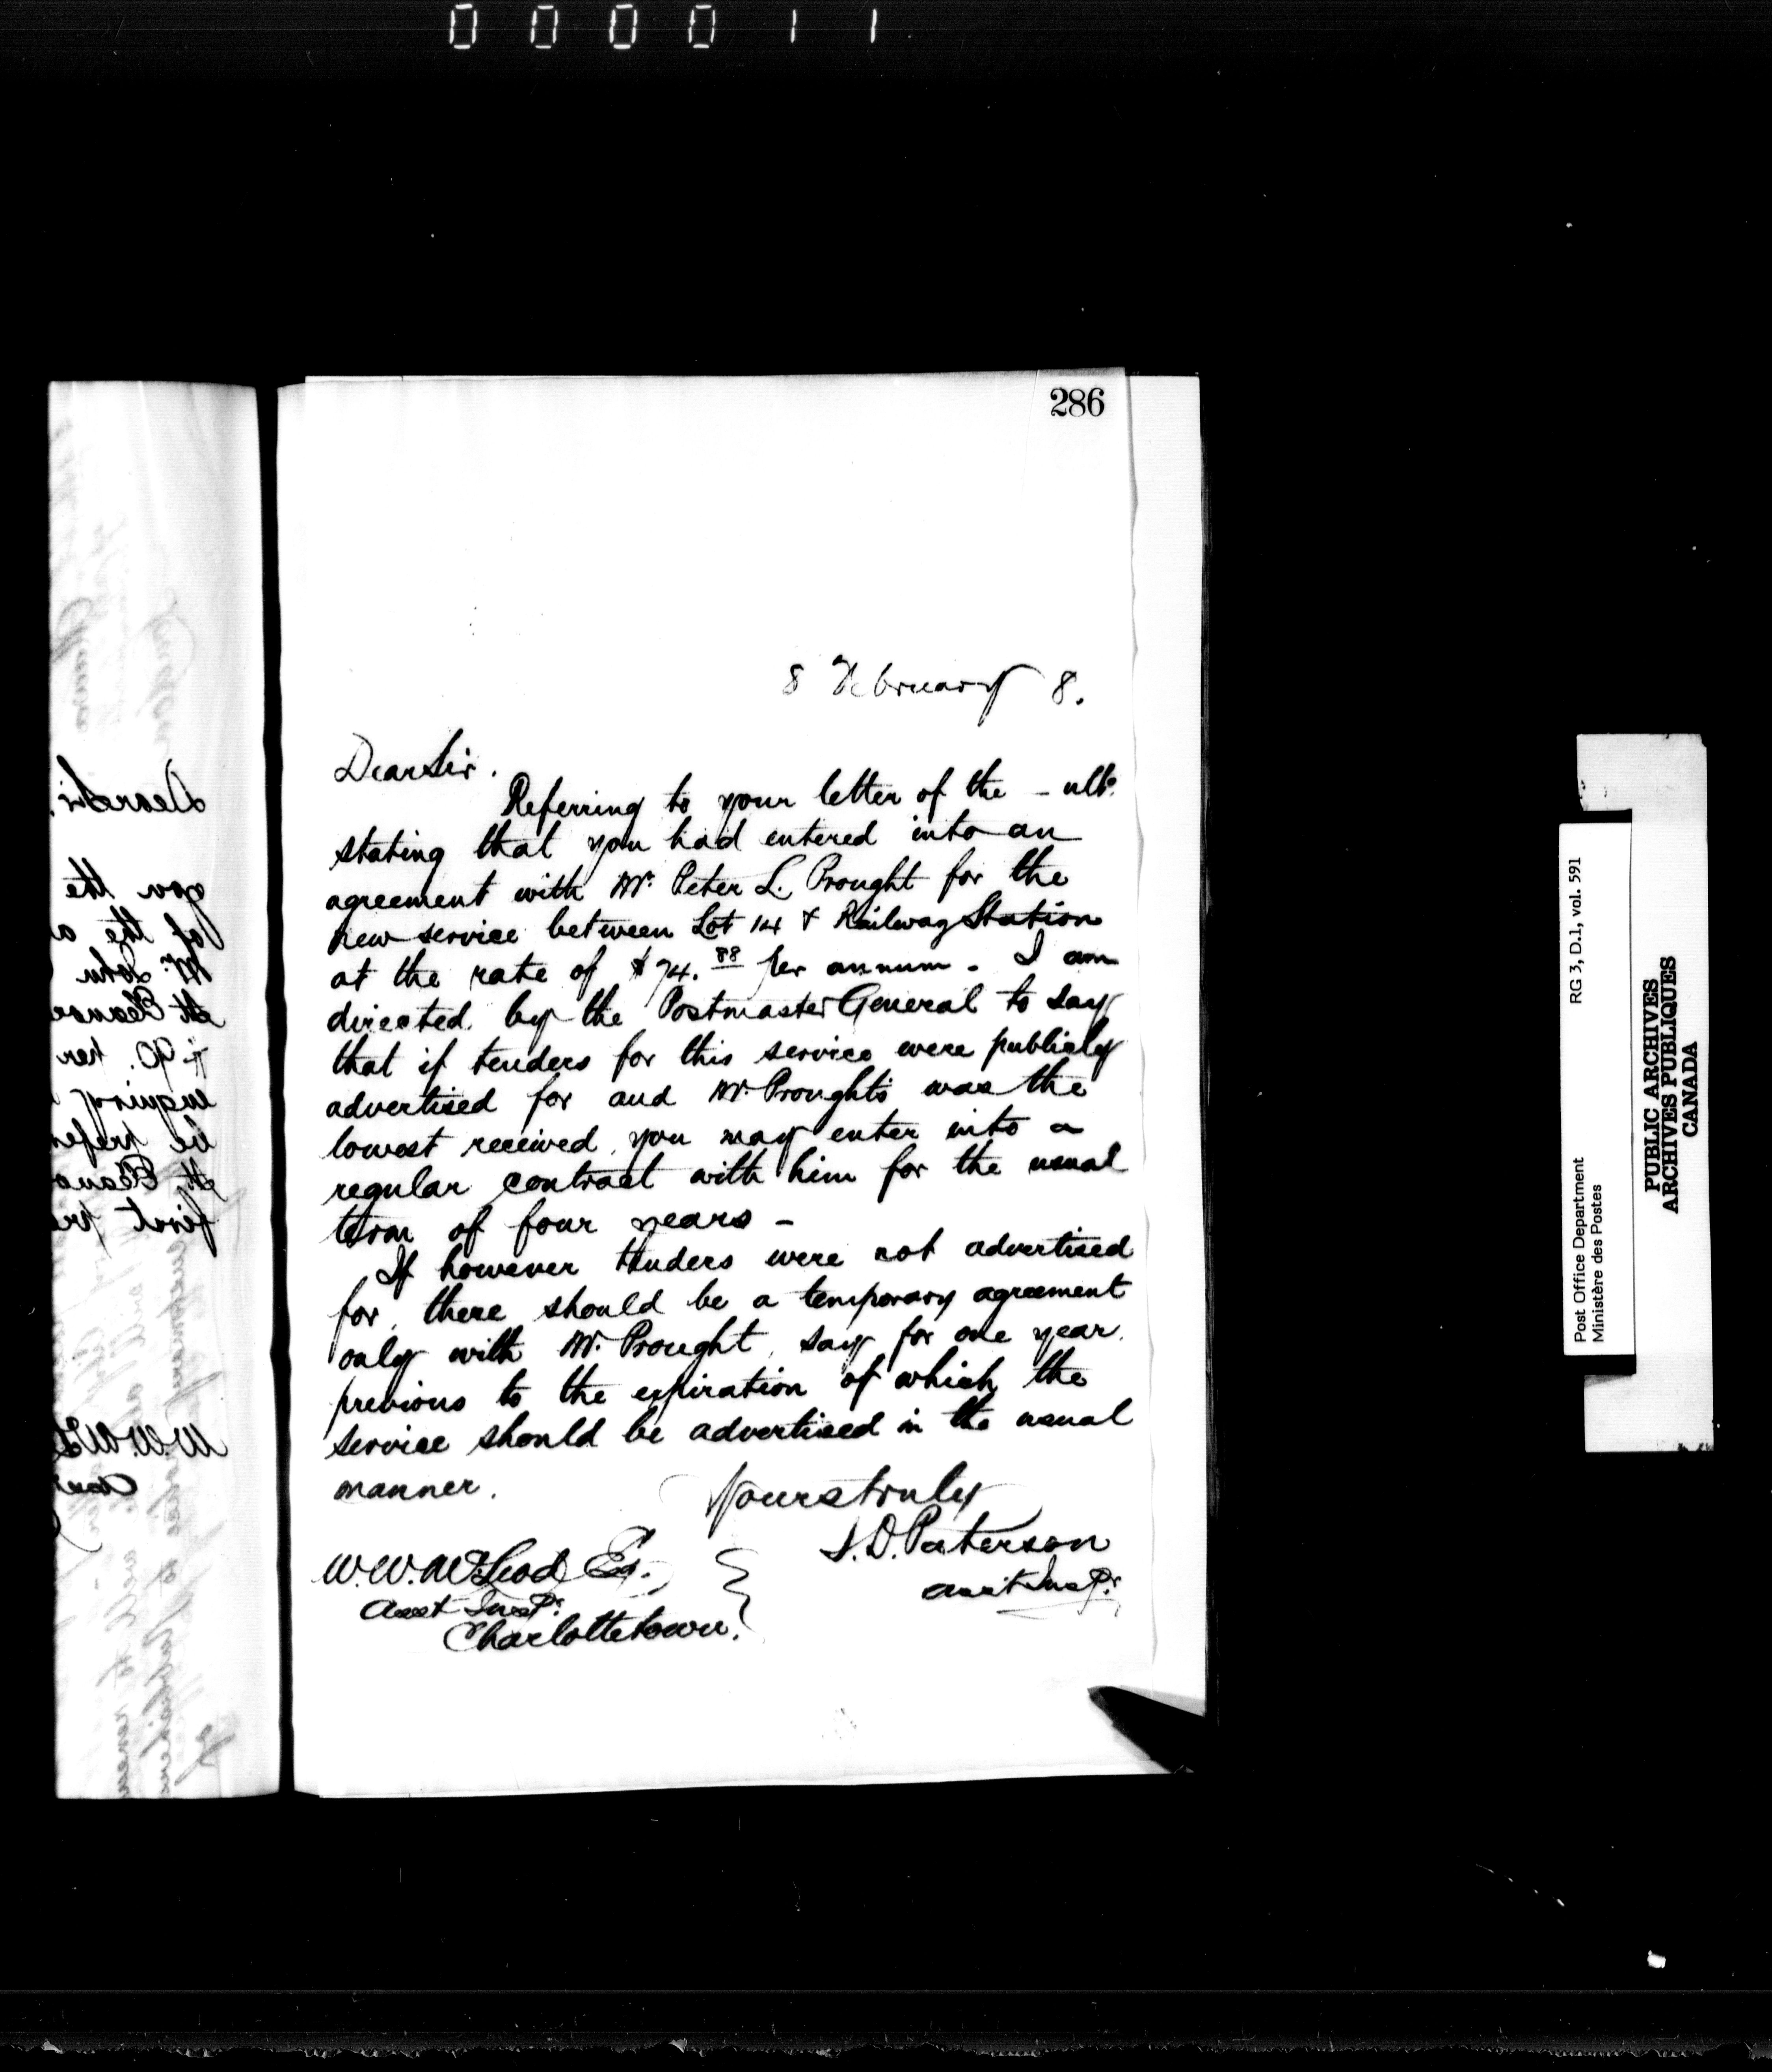 000011
286
8 February 8.
Dear Sir.
Referring to your letter of the – ulto.
stating that you had entered into an
agreement with Mr. Peter L. Prought for the
new service between Lot 14 & Railway Station
at the rate of $74.88 per annum – I am
directed by the Postmaster General to say
that if tenders for this service were publicly
advertised for and Mr. Prought's was the
lowest received, you may enter into a
regular contract with him for the usual
term of four years –
If however tenders were not advertised
for, there should be a temporary agreement
only with Mr. Prought, say for one year,
previous to the expiration of which the
service should be advertised in the usual
manner.
Yours truly
J.D. Paterson
Asst Inspr.
W.W. McLeod Esq.
Asst Inspr.
Charlottetown.
Dear Sir.
you the
of the
Mr. John
St. Eleanor
$90. per
enquiry
be prefer
St. Eleano
first
W.W. McL
Asst
Post Office Department RG 3, D.1, vol. 591
Ministère des Postes
PUBLIC ARCHIVES
ARCHIVES PUBLIQUES
CANADA